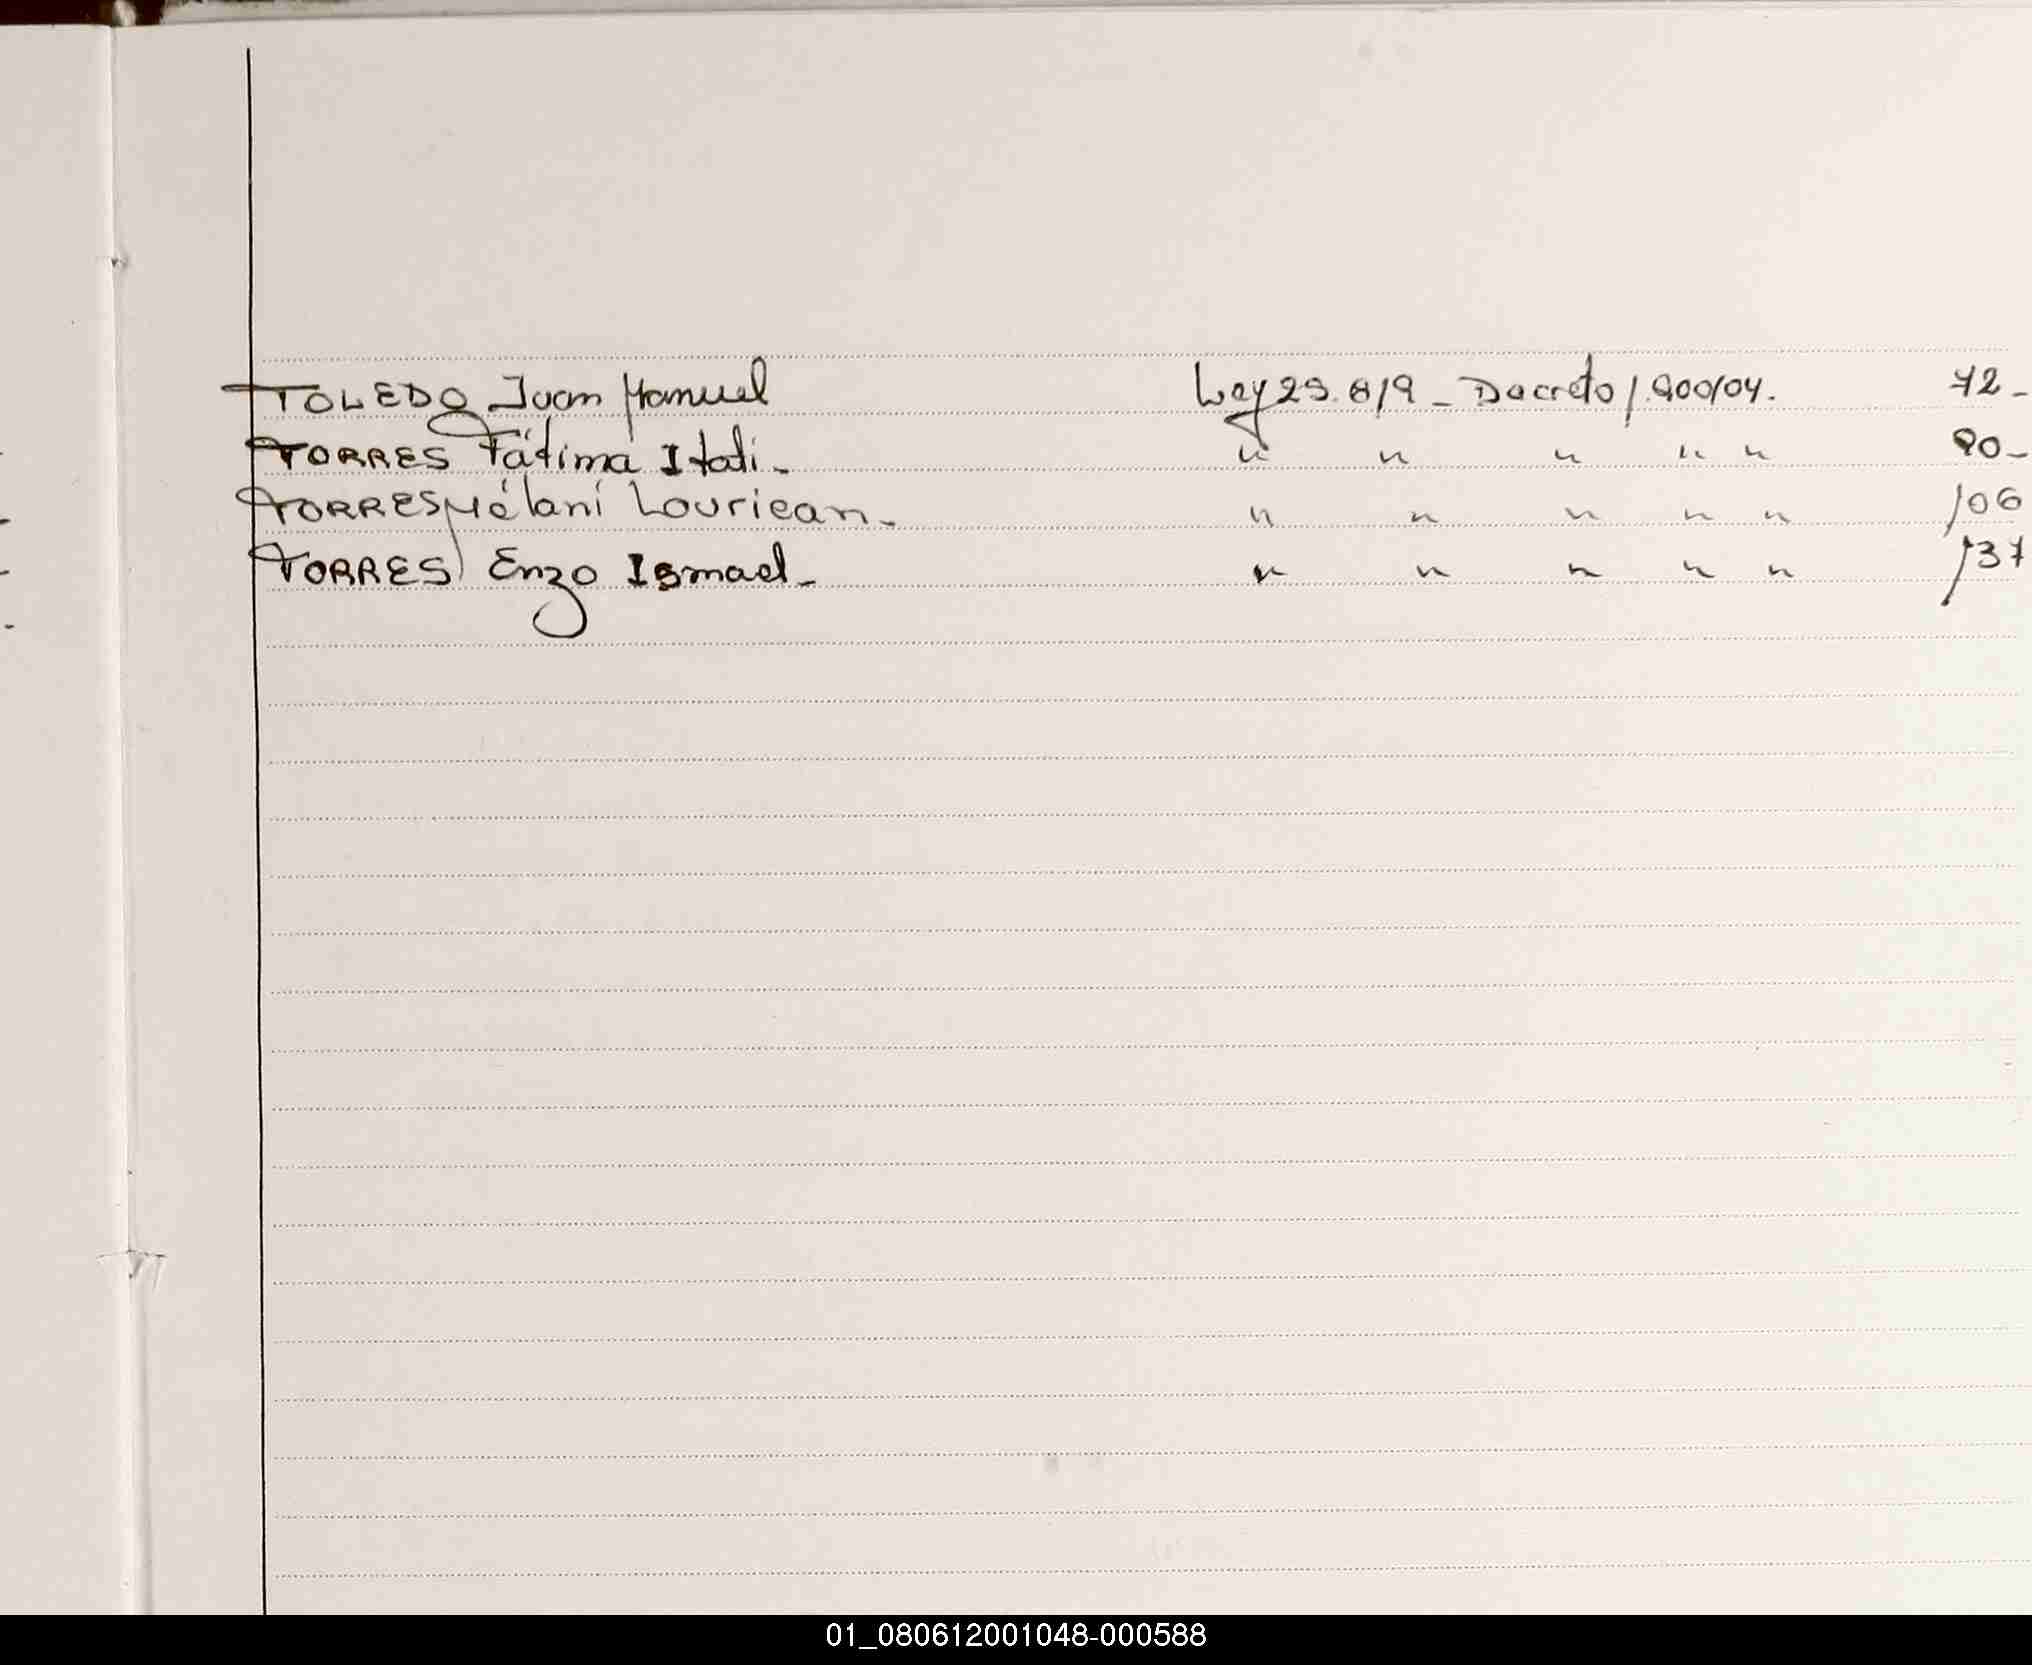 TOLEDO Juan Manuel Ley 25.819 - Decreto 1.900/04. 72-
TORRES Fátima Itati - " " " " " 90-
TORRES Mélani Louriean - " " " " " 106
TORRES Enzo Ismael - " " " " " 137
01_080612001048-000588